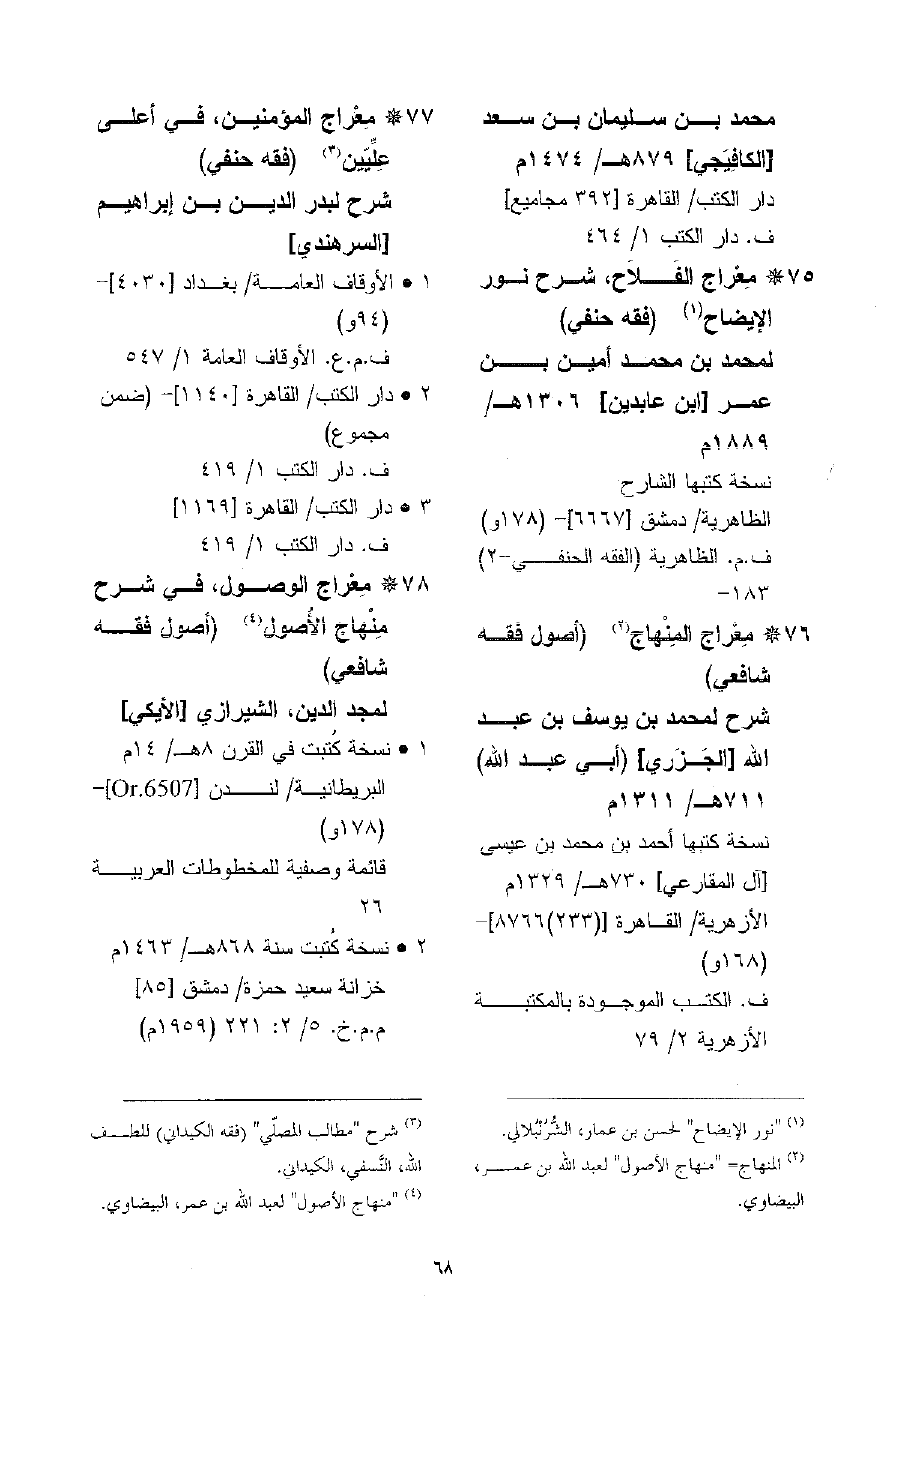 محمد بن سليمان بن سعد
[الكافِيَجي] ٨٧٩هـ/ ١٤٧٤م
دار الكتب/ القاهرة [٣٩٢ مجاميع]
ف. دار الكتب ١/ ٤٦٤
٧٥* مِعْراج الفَلاَح، شرح نور
الإيضاح(١) (فقه حنفي)
لمحمد بن محمد أمين بن
عمر [ابن عابدين] ١٣٠٦هـ/
١٨٨٩م
نسخة كتبها الشارح
الظاهرية/ دمشق [٦٦٦٧]- (١٧٨و)
ف.م. الظاهرية (الفقه الحنفي-٢)
١٨٣-
٧٦* مِعْراج المِنْهاج(٢) (أصول فقه
شافعي)
شرح لمحمد بن يوسف بن عبد
الله [الجَزَري] (أبي عبد الله)
٧١١هـ/ ١٣١١م
نسخة كتبها أحمد بن محمد بن عيسى
[آل المقارعي] ٧٣٠هـ/ ١٣٢٩م
الأزهرية/ القاهرة [(٢٣٣)٨٧٦٦]-
(١٦٨و)
ف. الكتب الموجودة بالمكتبة
الأزهرية ٢/ ٧٩
٧٧* مِعْراج المؤمنين، في أعلى
عِلِّيِّين(٣) (فقه حنفي)
شرح لبدر الدين بن إبراهيم
[السرهندي]
١ • الأوقاف العامة/ بغداد [٤٠٣٠]-
(٩٤و)
ف.م.ع. الأوقاف العامة ١/ ٥٤٧
٢ • دار الكتب/ القاهرة [١١٤٠]- (ضمن
مجموع)
ف. دار الكتب ١/ ٤١٩
٣ • دار الكتب/ القاهرة [١١٦٩]
ف. دار الكتب ١/ ٤١٩
٧٨* مِعْراج الوصول، في شرح
مِنْهاج الأُصول(٤) (أصول فقه
شافعي)
لمجد الدين، الشيرازي [الأيكي]
١ • نسخة كُتبت في القرن ٨هـ/ ١٤م
البريطانية/ لندن [Or.6507]-
(١٧٨و)
قائمة وصفية للمخطوطات العربية
٢٦
٢ • نسخة كُتبت سنة ٨٦٨هـ/ ١٤٦٣م
خزانة سعيد حمزة/ دمشق [٨٥]
م.م.خ. ٥/ ٢: ٢٢١ (١٩٥٩م)
(١) "نور الإيضاح" لحسن بن عمار، الشُّرُنْبُلالي.
(٢) المنهاج= "منهاج الأصول" لعبد الله بن عمر،
البيضاوي.
(٣) شرح "مطالب المصلّي" (فقه الكيداني) للطف
الله، النَّسفي، الكيداني.
(٤) "منهاج الأصول" لعبد الله بن عمر، البيضاوي.
٦٨